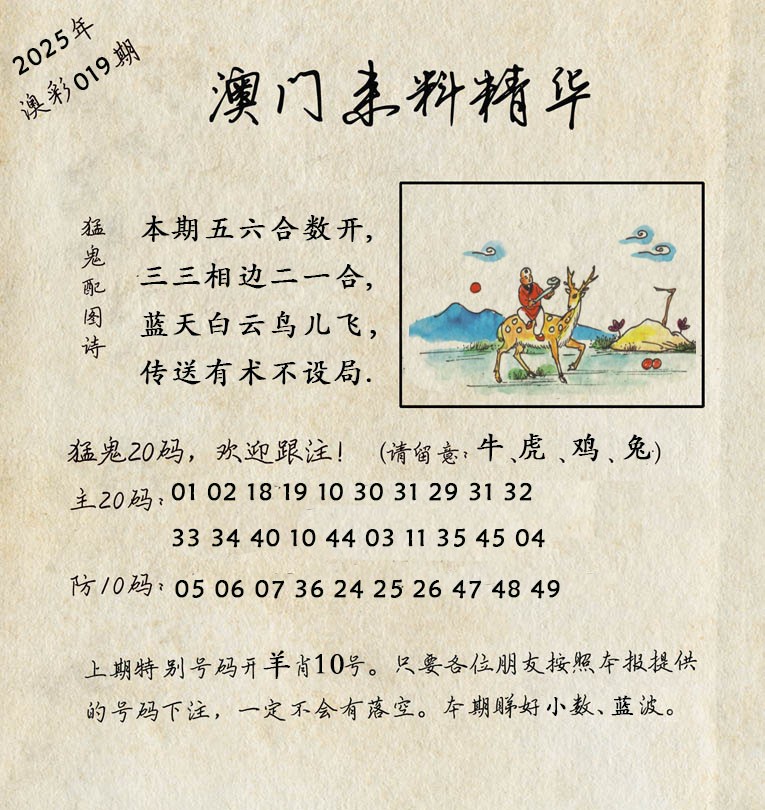 2025年
澳彩019期
澳门来料精华
猛鬼配图诗
本期五六合数开,
三三相边二一合,
蓝天白云鸟儿飞,
传送有术不设局.
猛鬼20码，欢迎跟注！（请留意：牛、虎、鸡、兔）
主20码：01 02 18 19 10 30 31 29 31 32
33 34 40 10 44 03 11 35 45 04
防10码：05 06 07 36 24 25 26 47 48 49
上期特别号码开羊肖10号。只要各位朋友按照本报提供
的号码下注，一定不会有落空。本期睇好小数、蓝波。